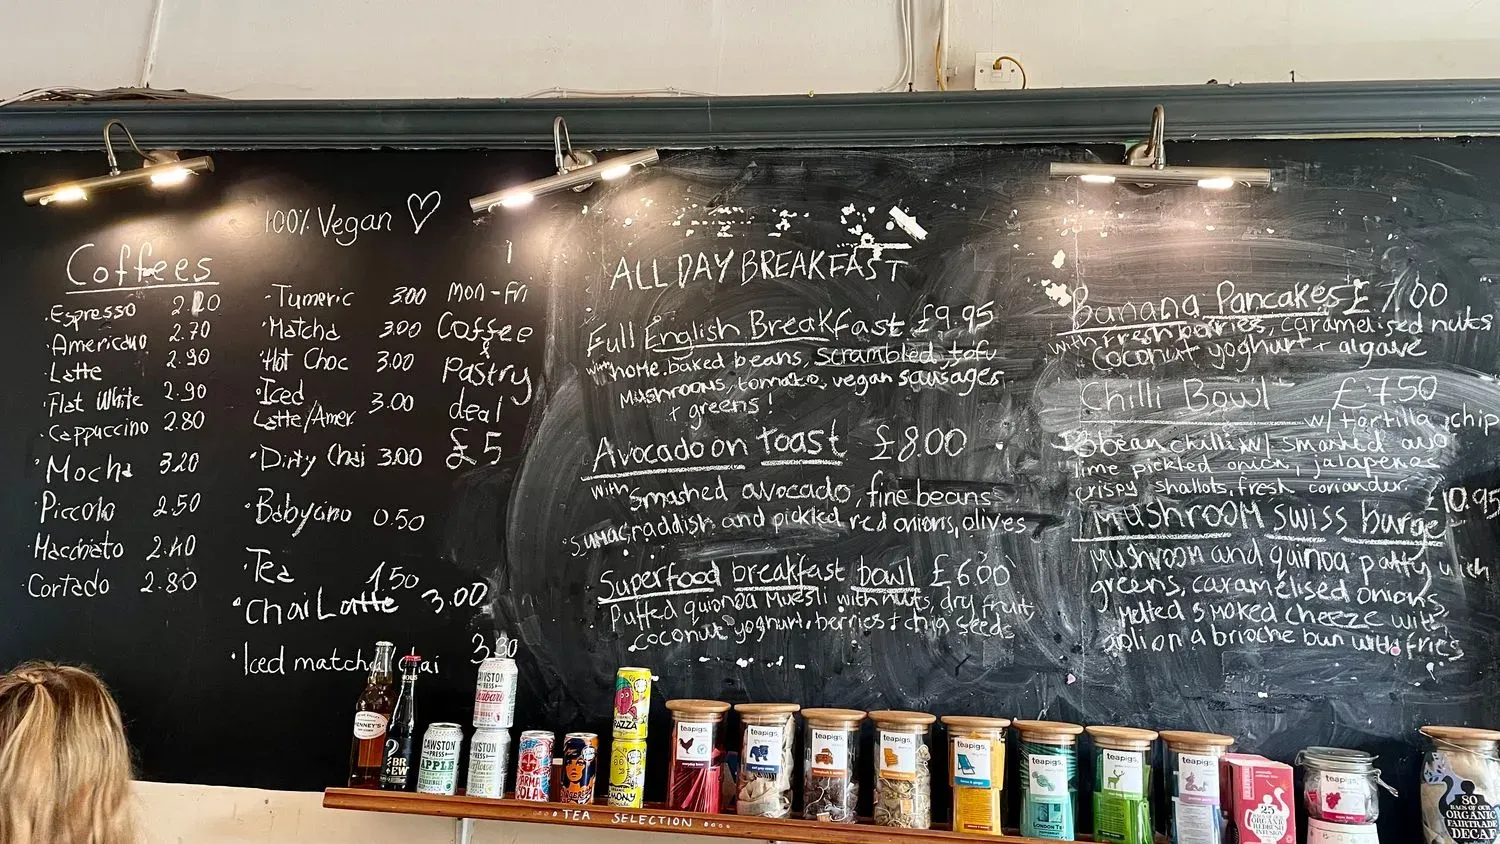 100% Vegan
Coffees
Espresso 2.20
Americano 2.70
Latte 2.90
Flat White 2.90
Cappuccino 2.80
Mocha 3.20
Piccolo 2.50
Macchiato 2.40
Cortado 2.80
Tumeric 3.00
Matcha 3.00
Hot Choc 3.00
Iced
Latte/Amer. 3.00
Dirty Chai 3.00
Babycino 0.50
Tea 1.50
Chai Latte 3.00
Iced matcha/chai 3.30
Mon-Fri
Coffee
&
Pastry
deal
£5
ALL DAY BREAKFAST
Full English Breakfast £9.95
with home baked beans, scrambled tofu
Mushrooms, tomato, vegan sausages
+ greens!
Avocado on toast £8.00
with smashed avocado, fine beans
sumac, raddish and pickled red onions, olives
Superfood breakfast bowl £6.00
Puffed quionoa Muesli with nuts, dry fruit,
coconut yoghurt, berries + chia seeds
Banana Pancakes £7.00
with fresh berries, caramelised nuts
Coconut yoghurt + algave
Chilli Bowl £7.50
w/ tortilla chip
3 bean chilli w/ smashed avo
lime pickled onion, jalapenos
crispy shallots, fresh coriander.
£10.95
Mushroom swiss burge
Mushroom and quinoa patty with
greens, caramelised onions,
Melted smoked cheeze with
aoli on a brioche bun with fries
CAWSTON
PRESS
Rhubarb
CAWSTON
PRESS
APPLE
CAWSTON
PRESS
KARMA
COLA
BR
EW
teapigs.
teapigs.
teapigs.
teapigs.
teapigs.
teapigs.
LONDON TEA
teapigs.
teapigs.
teapigs.
80
BAGS OF OUR
ORGANIC
FAIRTRADE
DECAF
TEA SELECTION